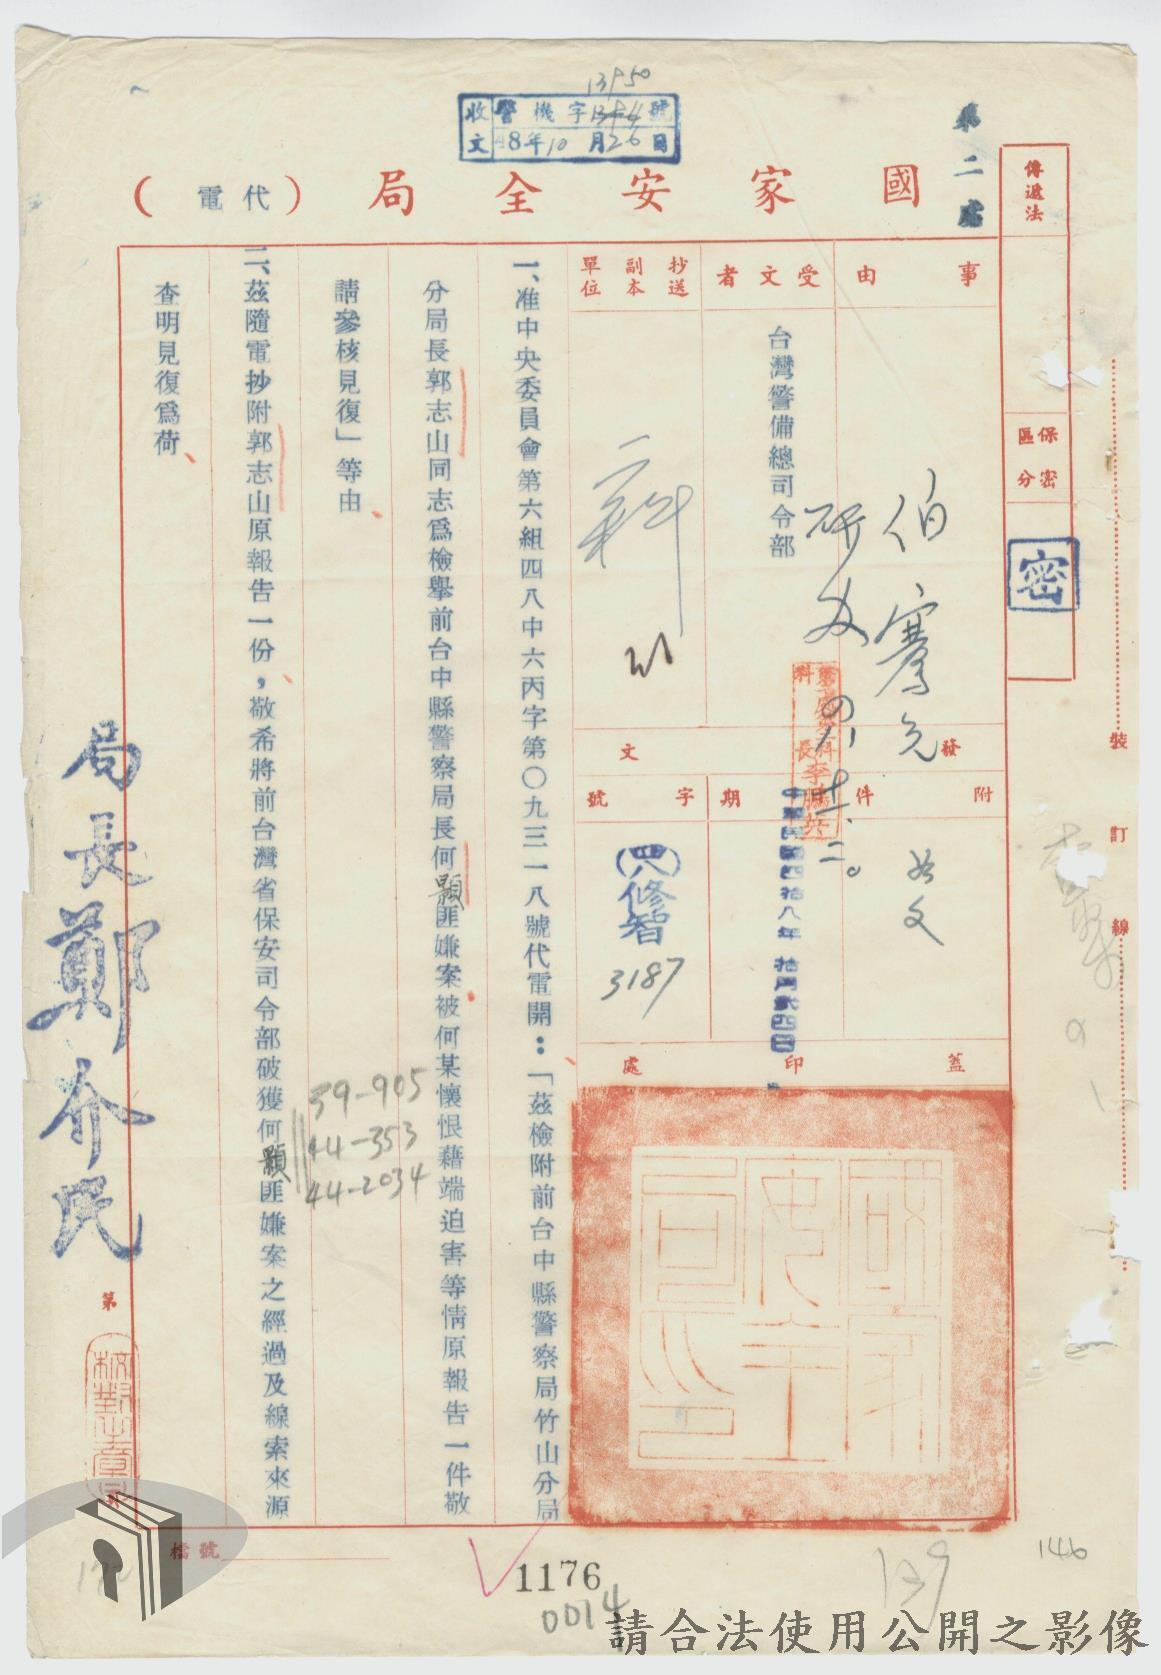 13950
收文 警機字1394號
48年10月26日
第二處
國家安全局(代電)
傳遞法
保密區分
密
事由
受文者
台灣警備總司令部
抄送副本單位
附件
如文
發文
期
中華民國四拾八年拾月貳四日
字號
(四八)修智
3187
蓋印處
伯騫兄
研處
四八、十一、二。
科長李鵬英
一、准中央委員會第六組四八中六丙字第〇九三一八號代電開：「茲檢附前台中縣警察局竹山分局
分局長郭志山同志爲檢舉前台中縣警察局長何顯匪嫌案被何某懷恨藉端迫害等情原報告一件敬
請參核見復」等由、
二、茲隨電抄附郭志山原報告一份，敬希將前台灣省保安司令部破獲何顯匪嫌案之經過及線索來源
查明見復爲荷、
39-905
44-353
44-2034
局長鄭介民
第
校對之章
檔號
裝訂線
1176
0014
139
146
請合法使用公開之影像